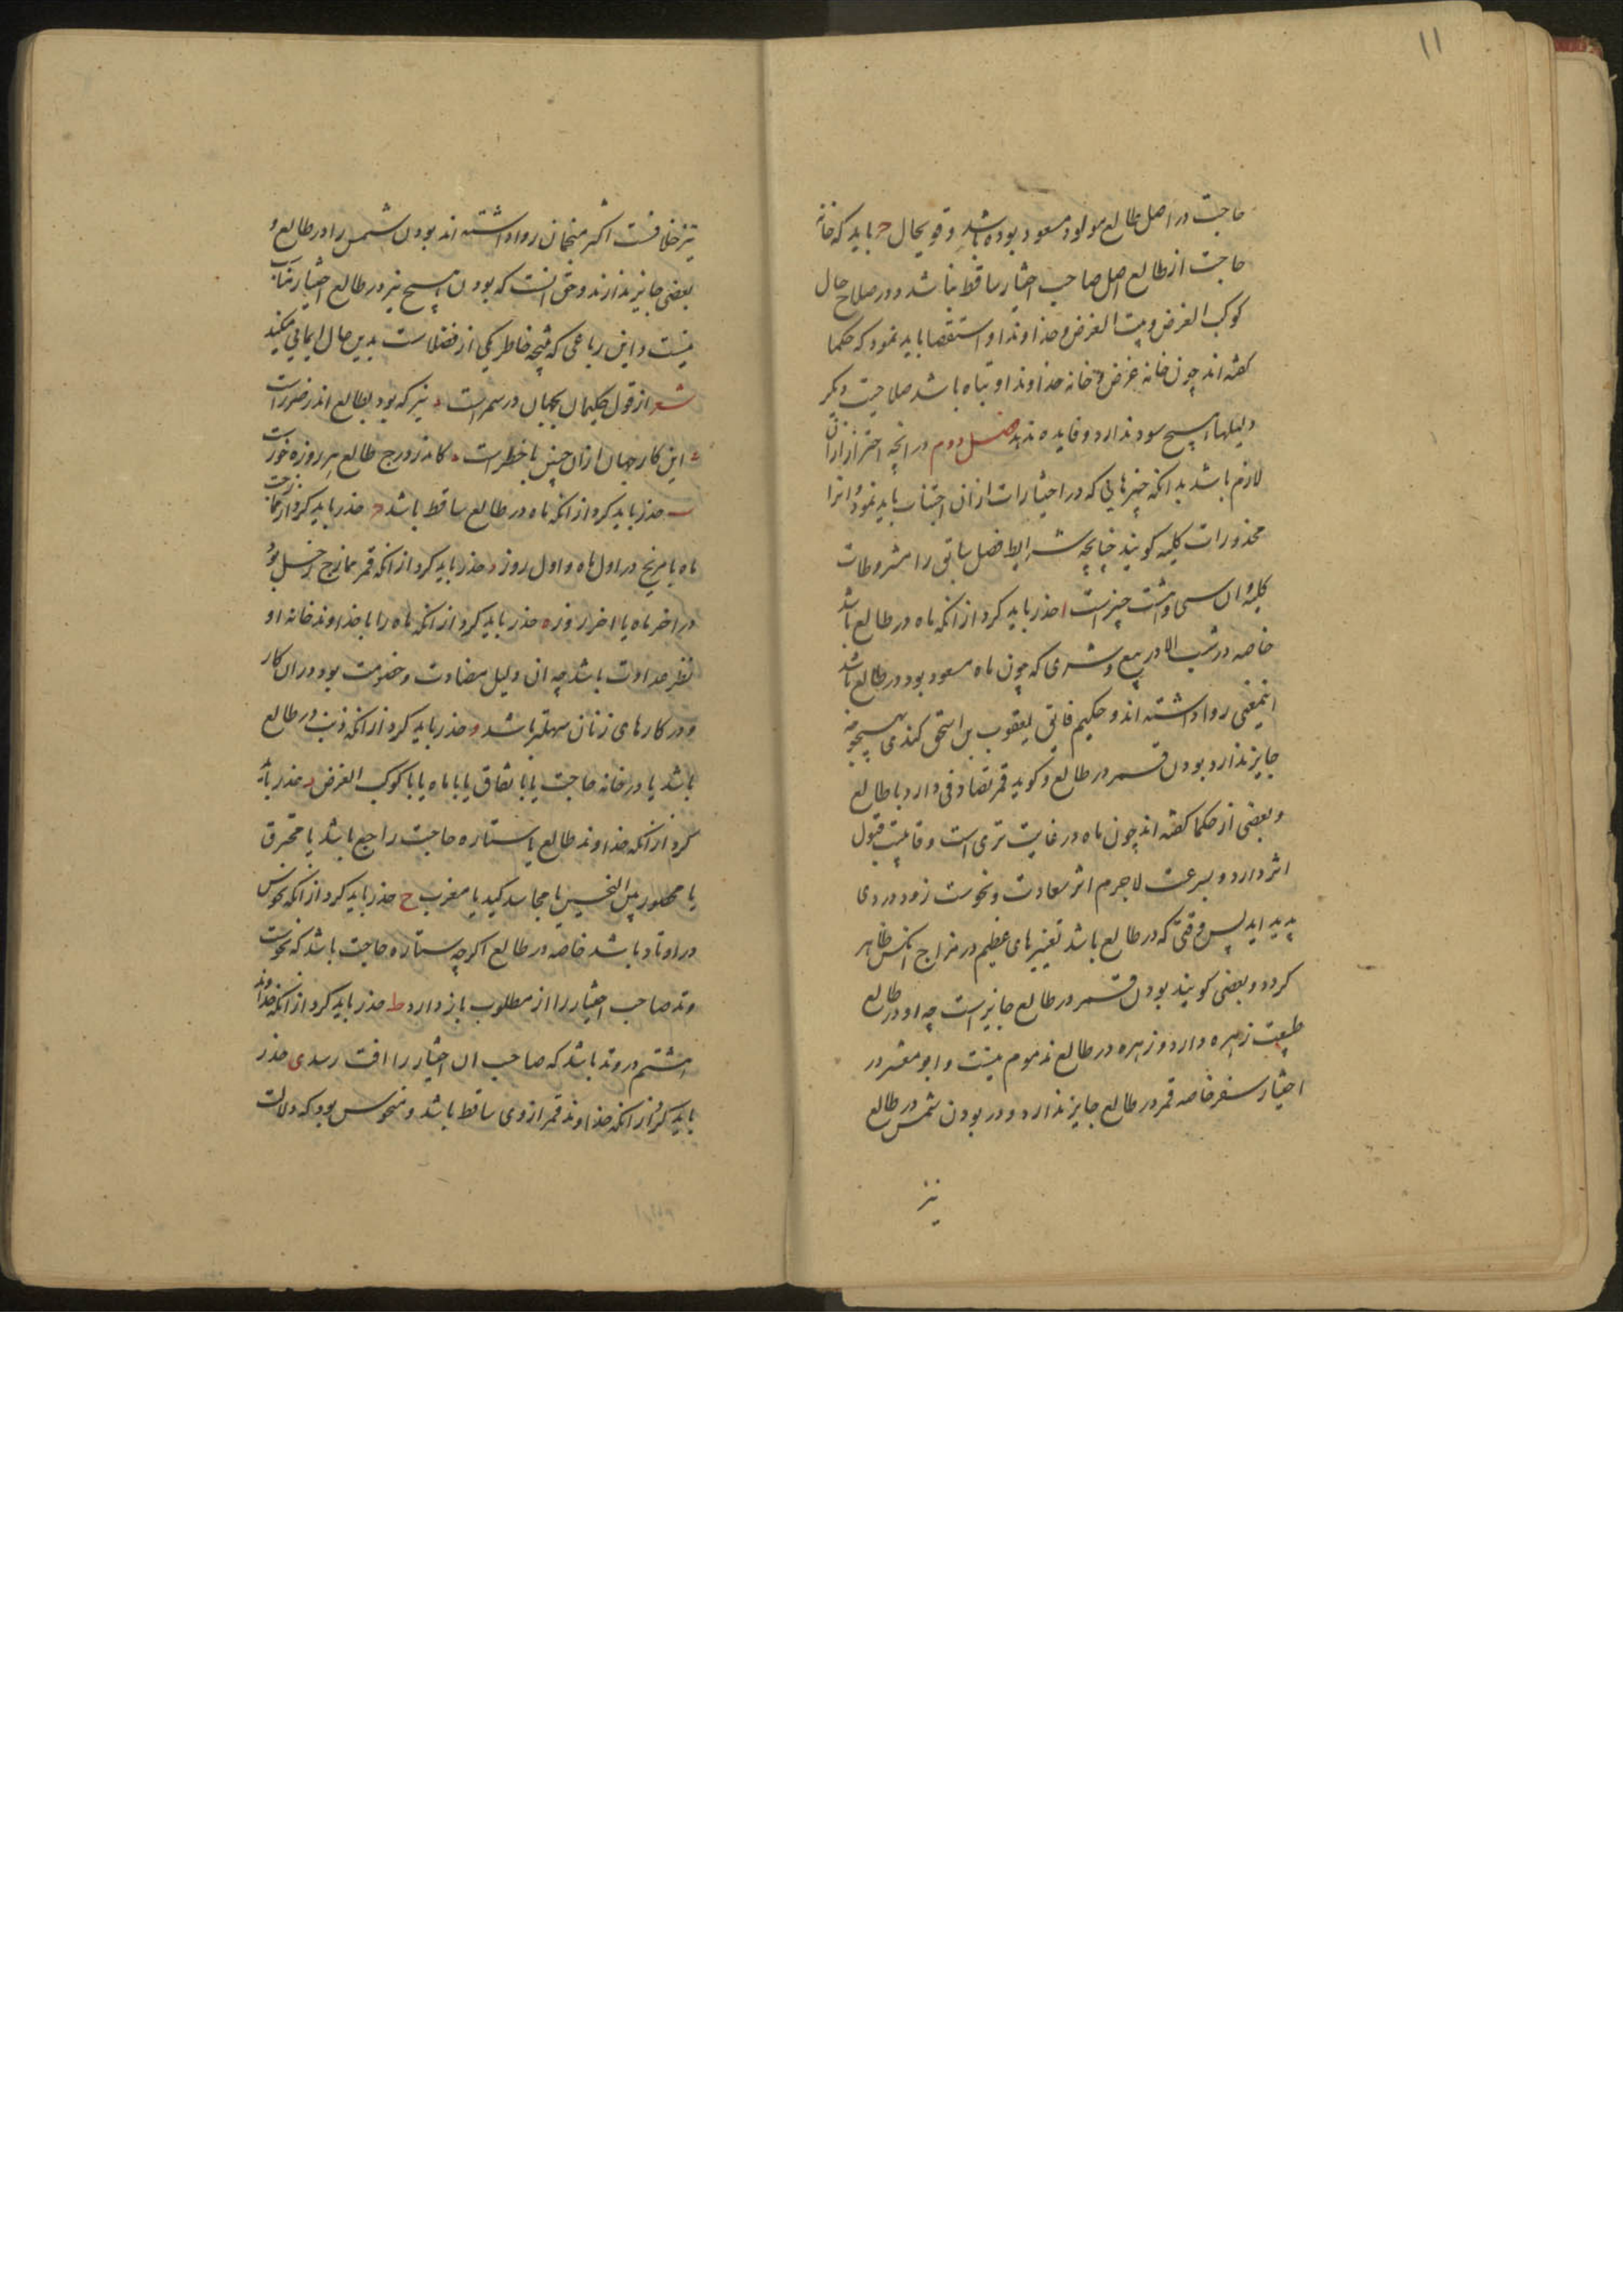 ۱۱
حاجت در اصل طالع مولود مسعود بوده باشد و قوی حال ح باید که خانه
حاجت از طالع اصل صاحب اختیار ساقط نباشد و در صلاح حال
کوکب الغرض و بیت الغرض و خداوند او استقصا باید نمود که حکما
کفته اند چون خانه غرض و خانه خداوند او تباه باشد صلاحیت دیکر
دلیلها هیچ سود ندارد و فایده ندهد فصل دوم در انچه احتراز ازان
لازم باشد بدانکه چیزهایی که در اختیارات ازان اجتناب باید نمود و انرا
محذورات کلیه کویند چنانچه شرایط فصل سابق را مشروطات
کلیه و ان سی و هشت چیزست ا حذر باید کرد از انکه ماه در طالع باشد
خاصه در شب الا در بیع و شری که چون ماه مسعود بود در طالع باشد
اینمعنی روا داشته اند و حکیم فایق یعقوب بن اسحق کندی بهیچوجه
جایز ندارد بودن قمر در طالع و کوید قمر تضادفی دارد با طالع
و بعضی از حکما کفته اند چون ماه در غایت تری است و قابلیت قبول
اثر دارد و بسرعت لاجرم اثر سعادت و نحوست زود در وی
پدید اید پس وقتی که در طالع باشد تغییرهای عظیم در مزاج انکس ظاهر
کردد و بعضی کویند بودن قمر در طالع جایز است چه او در طالع
طبیعت زهره دارد و زهره در طالع مذموم نیست و ابو معشر در
اختیار سفر خاصه قمر در طالع جایز ندارد و در بودن شمس در طالع
نیز
نیز خلافست اکثر منجمان روا داشته اند بودن شمس را در طالع و
بعضی جایز ندارند و حق انست که بودن هیچ نیر در طالع اختیار مناسب
نیست و این رباعی که نتیجه خاطر یکی از فضلاست بدین حال ایمایی میکند
شعر از قول حکیمان جهان در سمر است نیر که بود بطالع اندر ضرر است
این کار جهان ازان چنین با خطر است کاندر درج طالع هر روزه خورست
ب حذر باید کرد از انکه ماه در طالع ساقط باشد ج حذر باید کرد از ممازجت
ماه با مریخ در اول ماه و اول روز د حذر باید کرد از انکه قمر ممازج زحل بود
در اخر ماه یا اخر روز ه حذر باید کرد از انکه ماه را با خداوند خانه او
نظر عداوت باشد چه ان دلیل مضادت و خصومت بود دران کار
و در کارهای زنان سهلتر باشد و حذر باید کرد از انکه ذنب در طالع
باشد یا در خانه حاجت یا با تفاق یا با ماه یا با کوکب الغرض ز حذر باید
کرد از انکه خداوند طالع یا ستاره حاجت راجع باشد یا محترق
یا محصور بین النحسین یا مجاسد کید یا مغرب ح حذر باید کرد از انکه نحوس
در اوتاد باشد خاصه در طالع اکرچه ستاره حاجت باشد که نحوست
وتد صاحب اختیار را از مطلوب باز دارد ط حذر باید کرد از انکه خداوند
هشتم در وتد باشد که صاحب ان اختیار را افت رسد ی حذر
باید کرد از انکه خداوند قمر از وی ساقط باشد و منحوس بود که دلالت